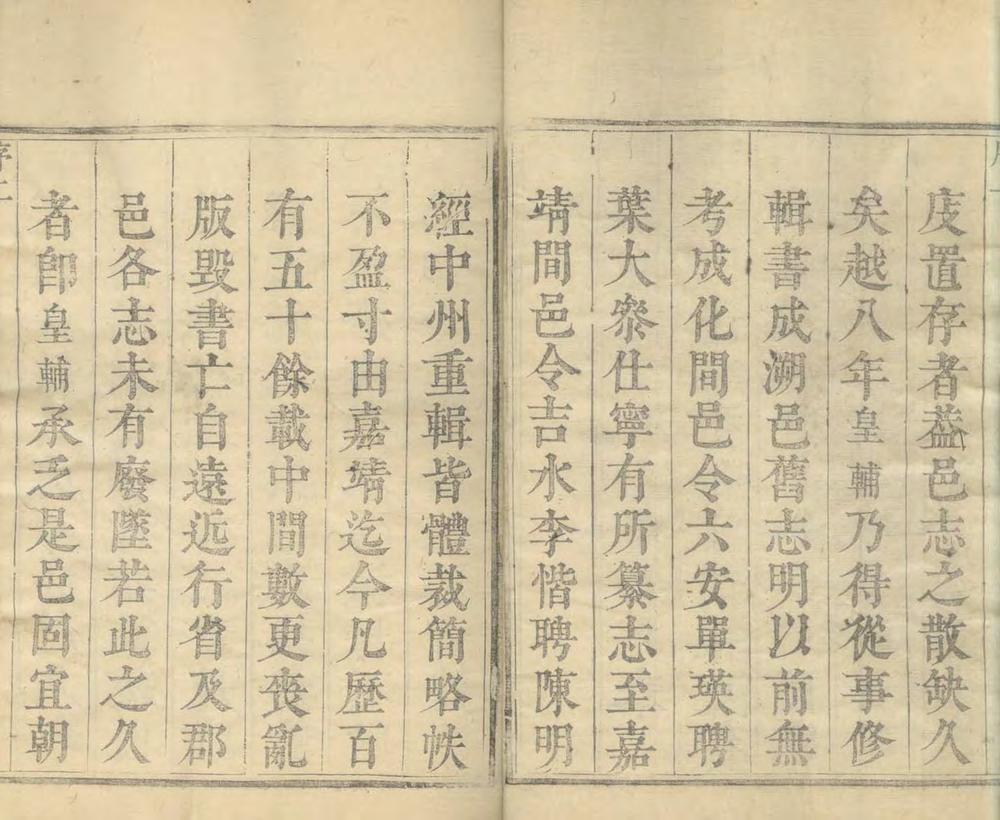 庋置存者葢邑志之散缺久
矣越八年皇輔乃得從事修
輯書成溯邑舊志明以前無
考成化間邑令六安單瑛聘
葉大叅仕寧有所纂志至嘉
靖間邑令吉水李愷聘陳明
經中州重輯皆體裁簡略帙
不盈寸由嘉靖迄今凡歷百
有五十餘載中間數更喪亂
版毀書亡自遠近行省及郡
邑各志未有廢墜若此之久
者卽皇輔承乏是邑固宜朝
序二